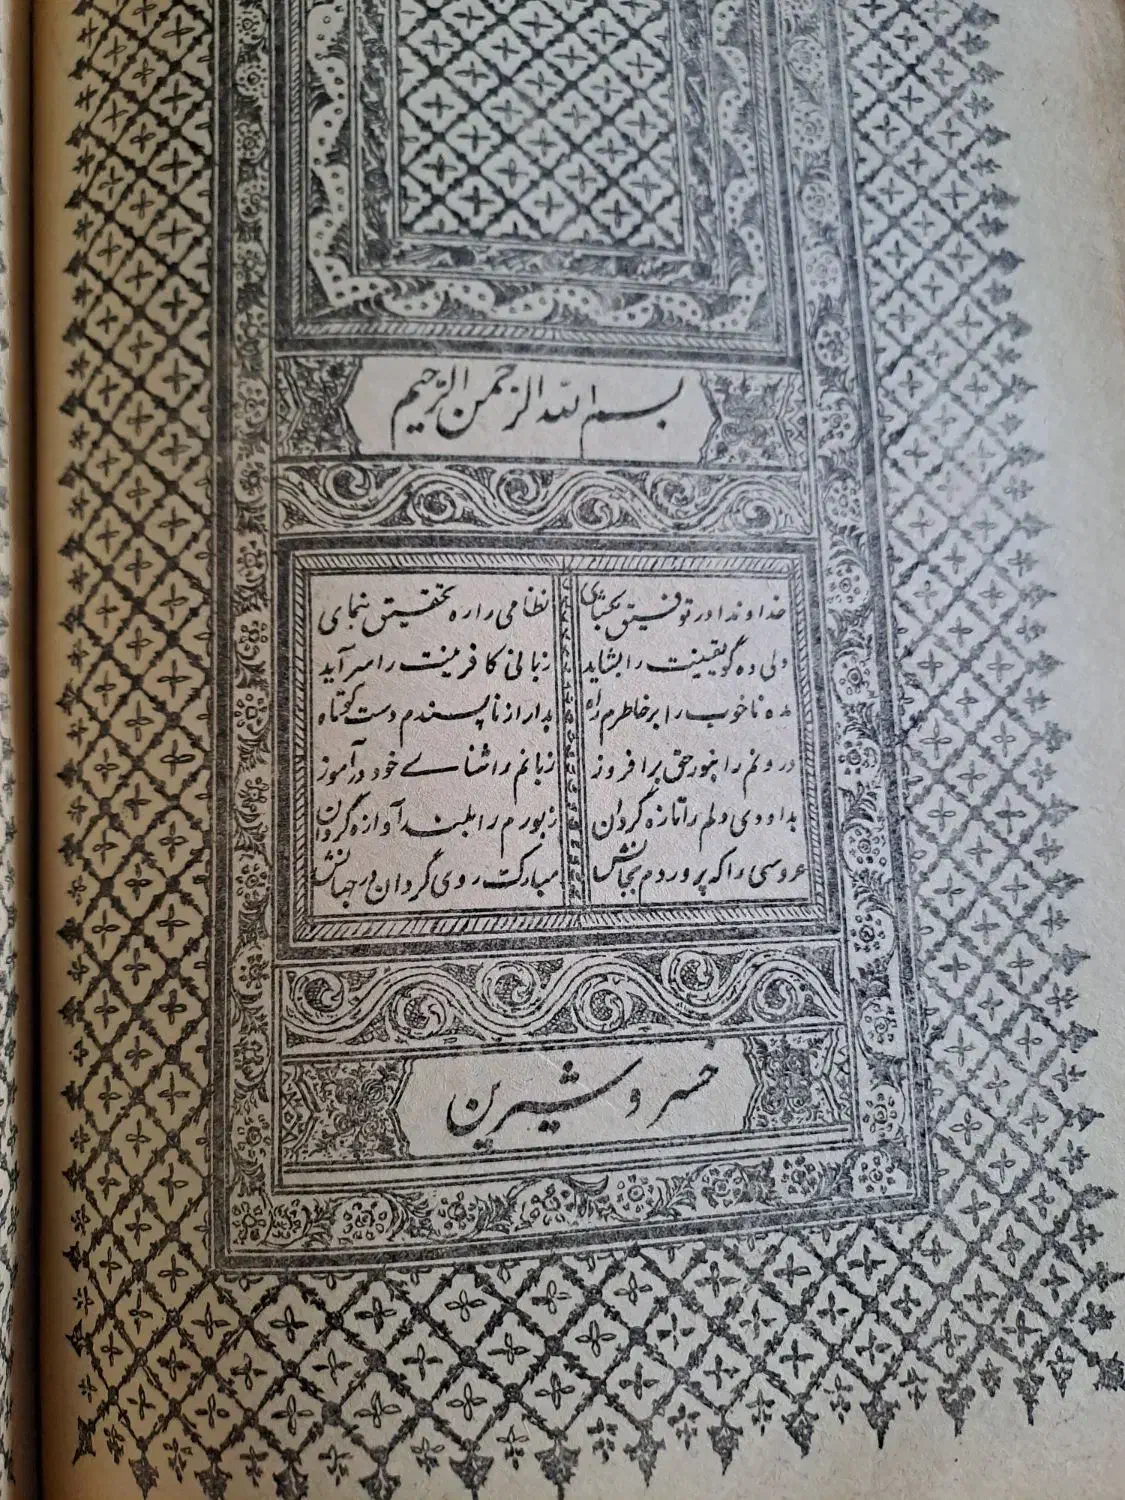 بسم الله الرحمن الرحیم
خداوندا در توفیق بکشای نظامی را ره تحقیق بنمای
دلی ده کو یقینت را بشاید زبانی کافرینت را سراید
مده ناخوب را بر خاطرم راه بدار از ناپسندم دست کوتاه
درونم را بنور حق برافروز زبانم را ثنای خود در آموز
بداودی دلم را تازه گردان زبورم را بلند آوازه گردان
عروسی را که پروردم بجانش مبارک روی گردان در جهانش
خسرو شیرین